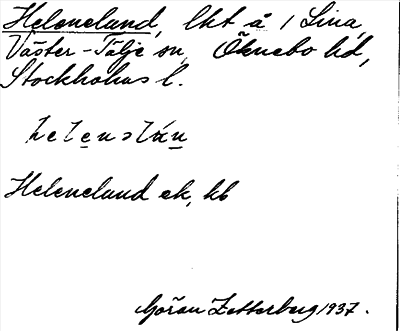 Heleneland, lkt å 1 Lina,
Väster-Tälje sn, Öknebo hd,
Stockholms l.
helenslán
Heleneland ek, kb
Göran Zetterberg 1937.